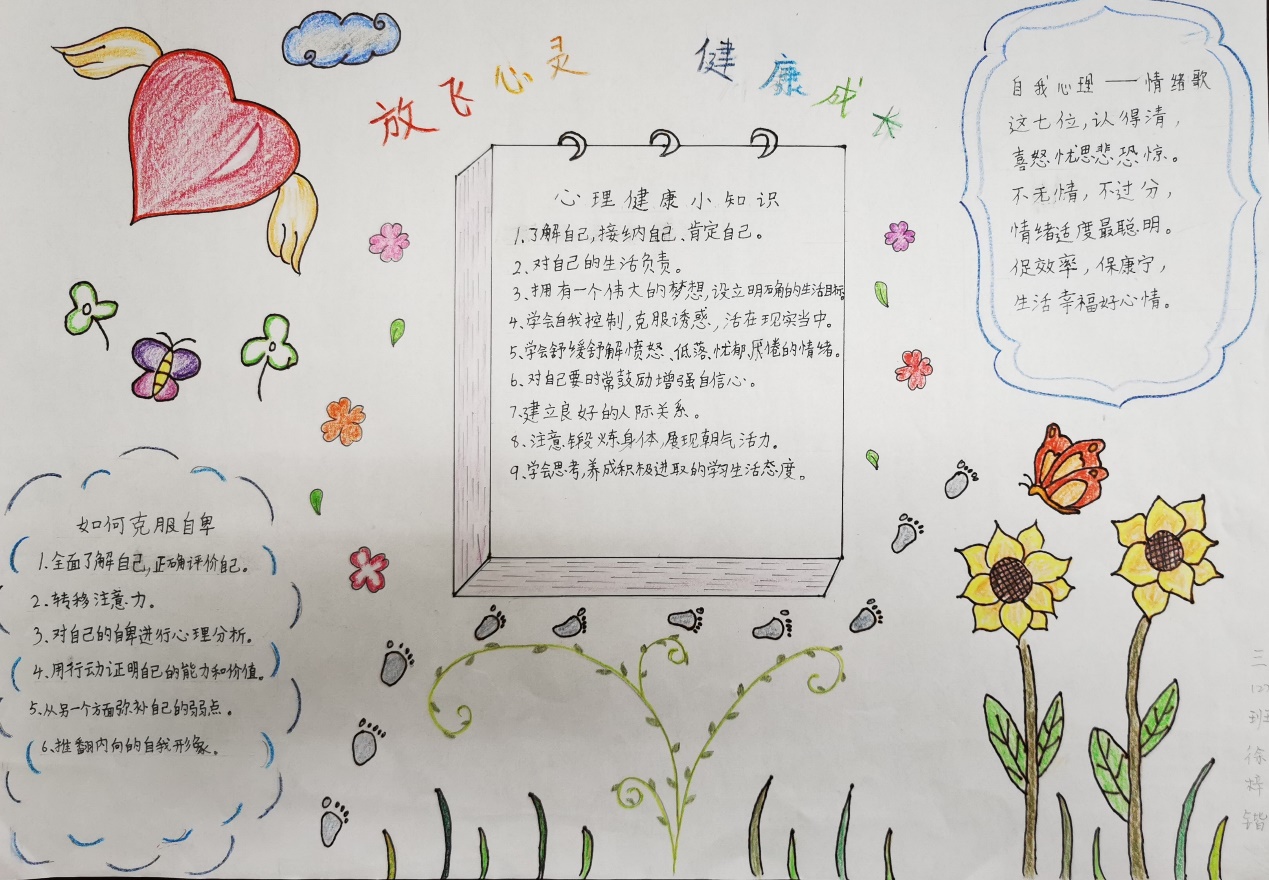 放飞心灵 健康成长
心理健康小知识
1.了解自己,接纳自己、肯定自己。
2、对自己的生活负责。
3、拥有一个伟大的梦想,设立明确的生活目标
4、学会自我控制,克服诱惑,活在现实当中。
5、学会舒缓舒解愤怒、低落、忧郁、厌倦的情绪。
6、对自己要时常鼓励增强自信心。
7、建立良好的人际关系。
8、注意锻炼身体,展现朝气活力。
9、学会思考,养成积极进取的学习生活态度。
自我心理——情绪歌
这七位,认得清,
喜怒忧思悲恐惊。
不无情,不过分,
情绪适度最聪明。
促效率,保康宁,
生活幸福好心情。
如何克服自卑
1.全面了解自己,正确评价自己。
2、转移注意力。
3、对自己的自卑进行心理分析。
4、用行动证明自己的能力和价值。
5、从另一个方面弥补自己的弱点。
6、推翻内向的自我形象。
三
127
班
徐
梓
锴